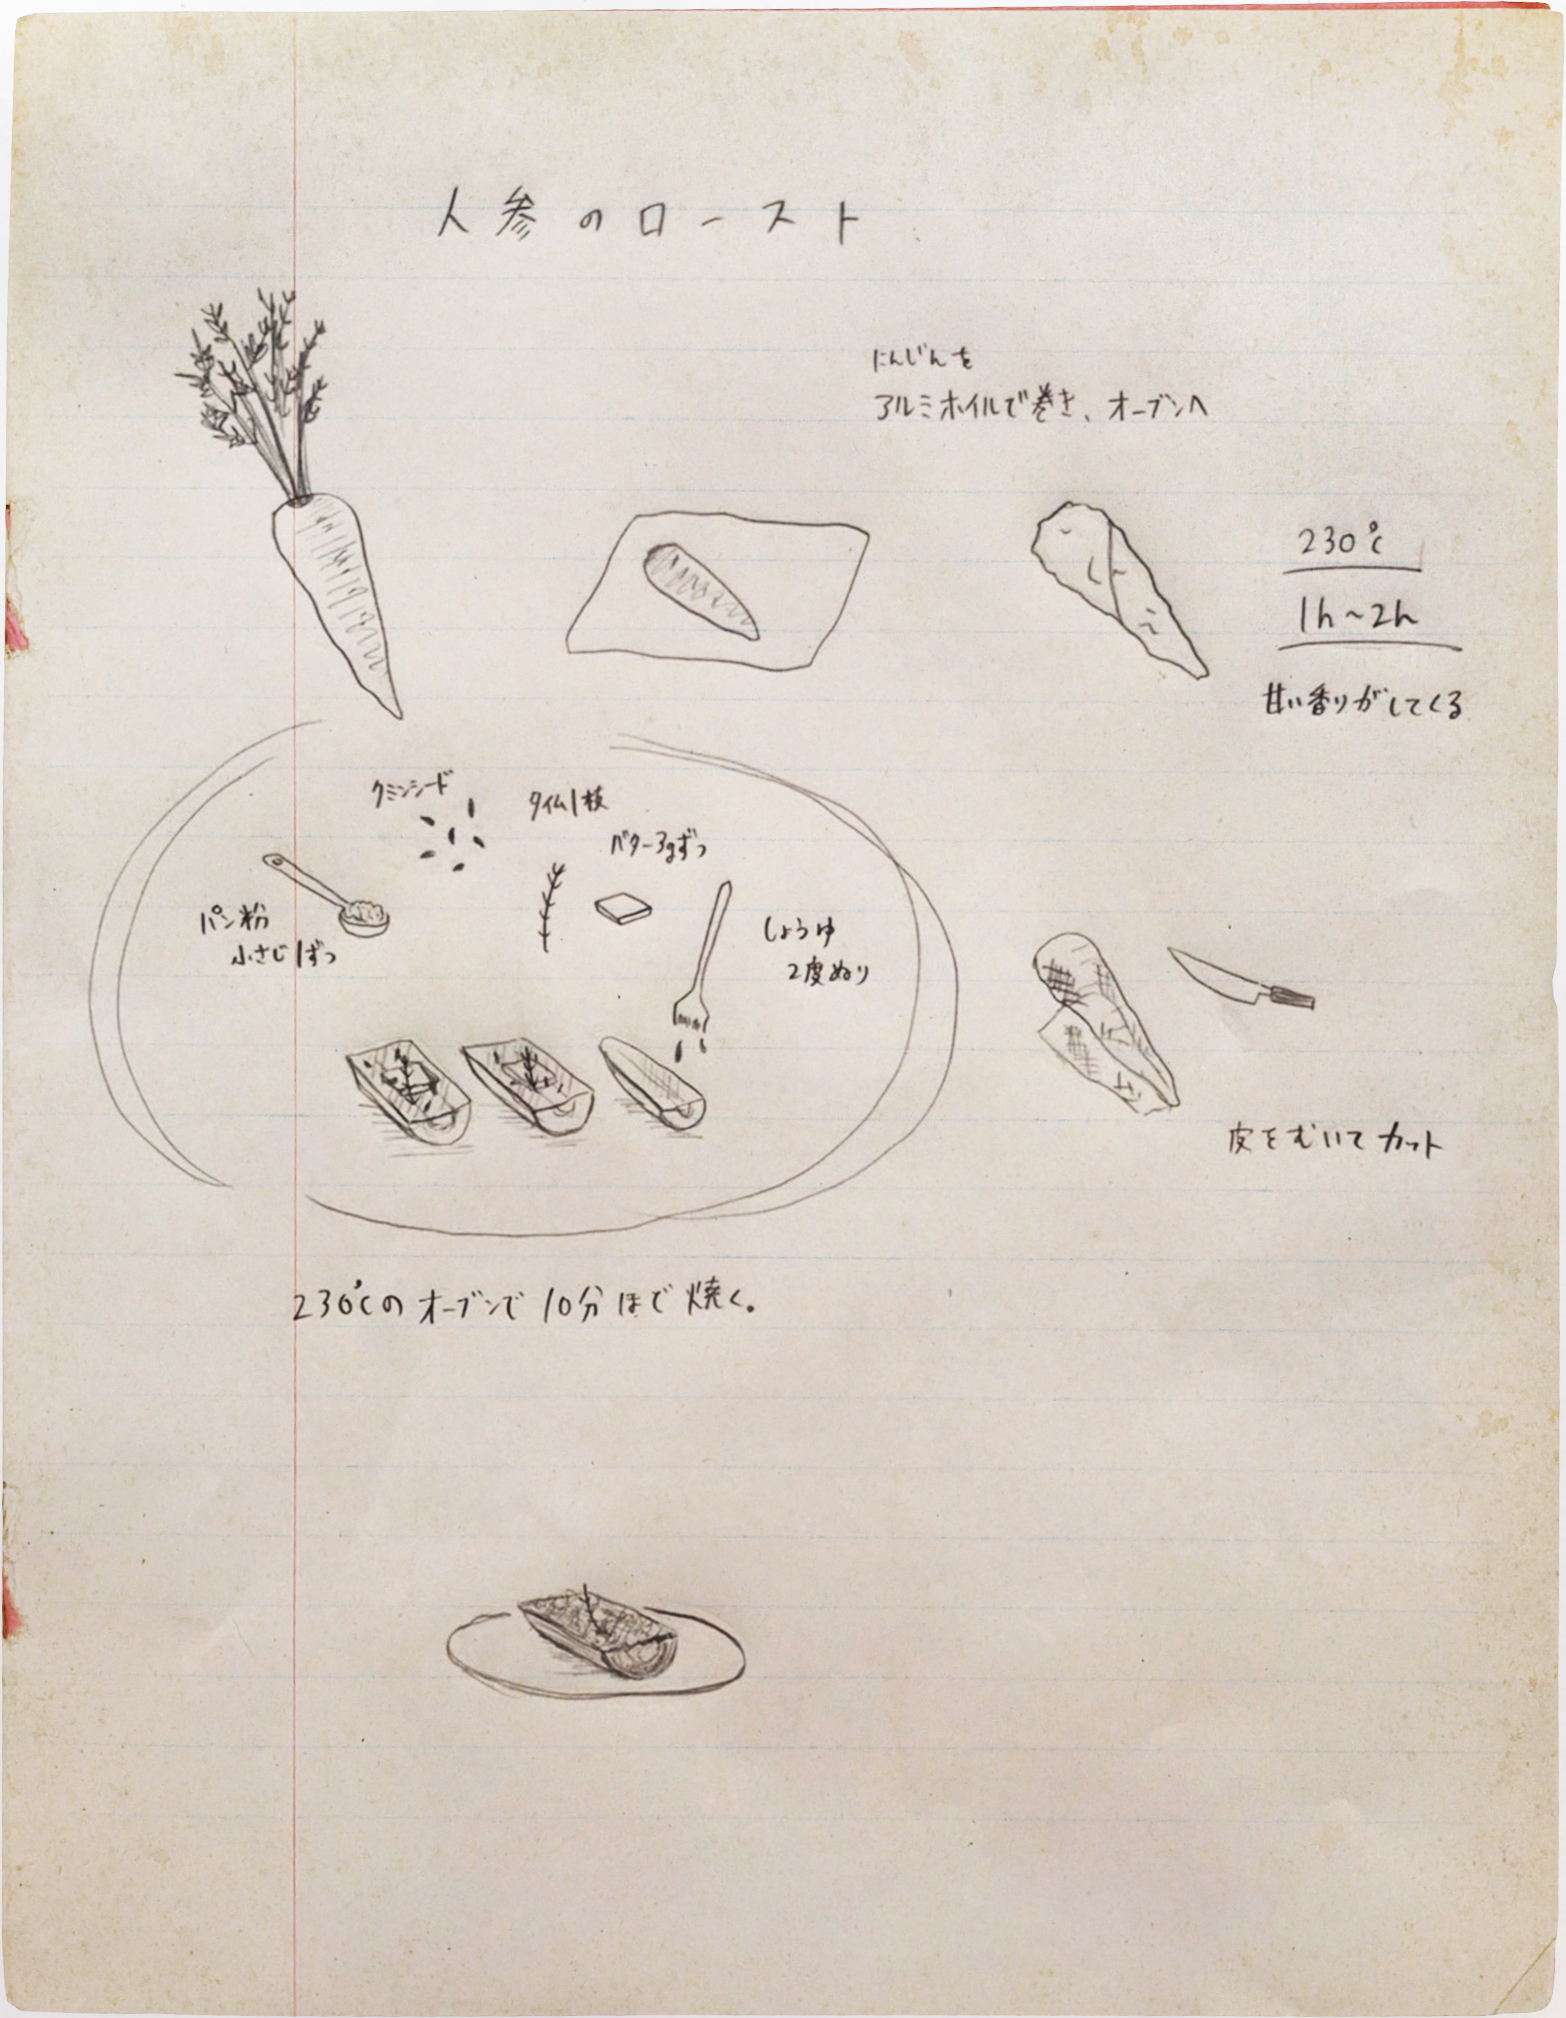 人参のロースト
にんじんを
アルミホイルで巻き、オーブンへ
230℃
1h~2h
甘い香りがしてくる
クミンシード
タイム1枝
バター3gずつ
パン粉
小さじ1ずつ
しょうゆ
2度ぬり
皮をむいてカット
230℃のオーブンで10分ほど焼く。